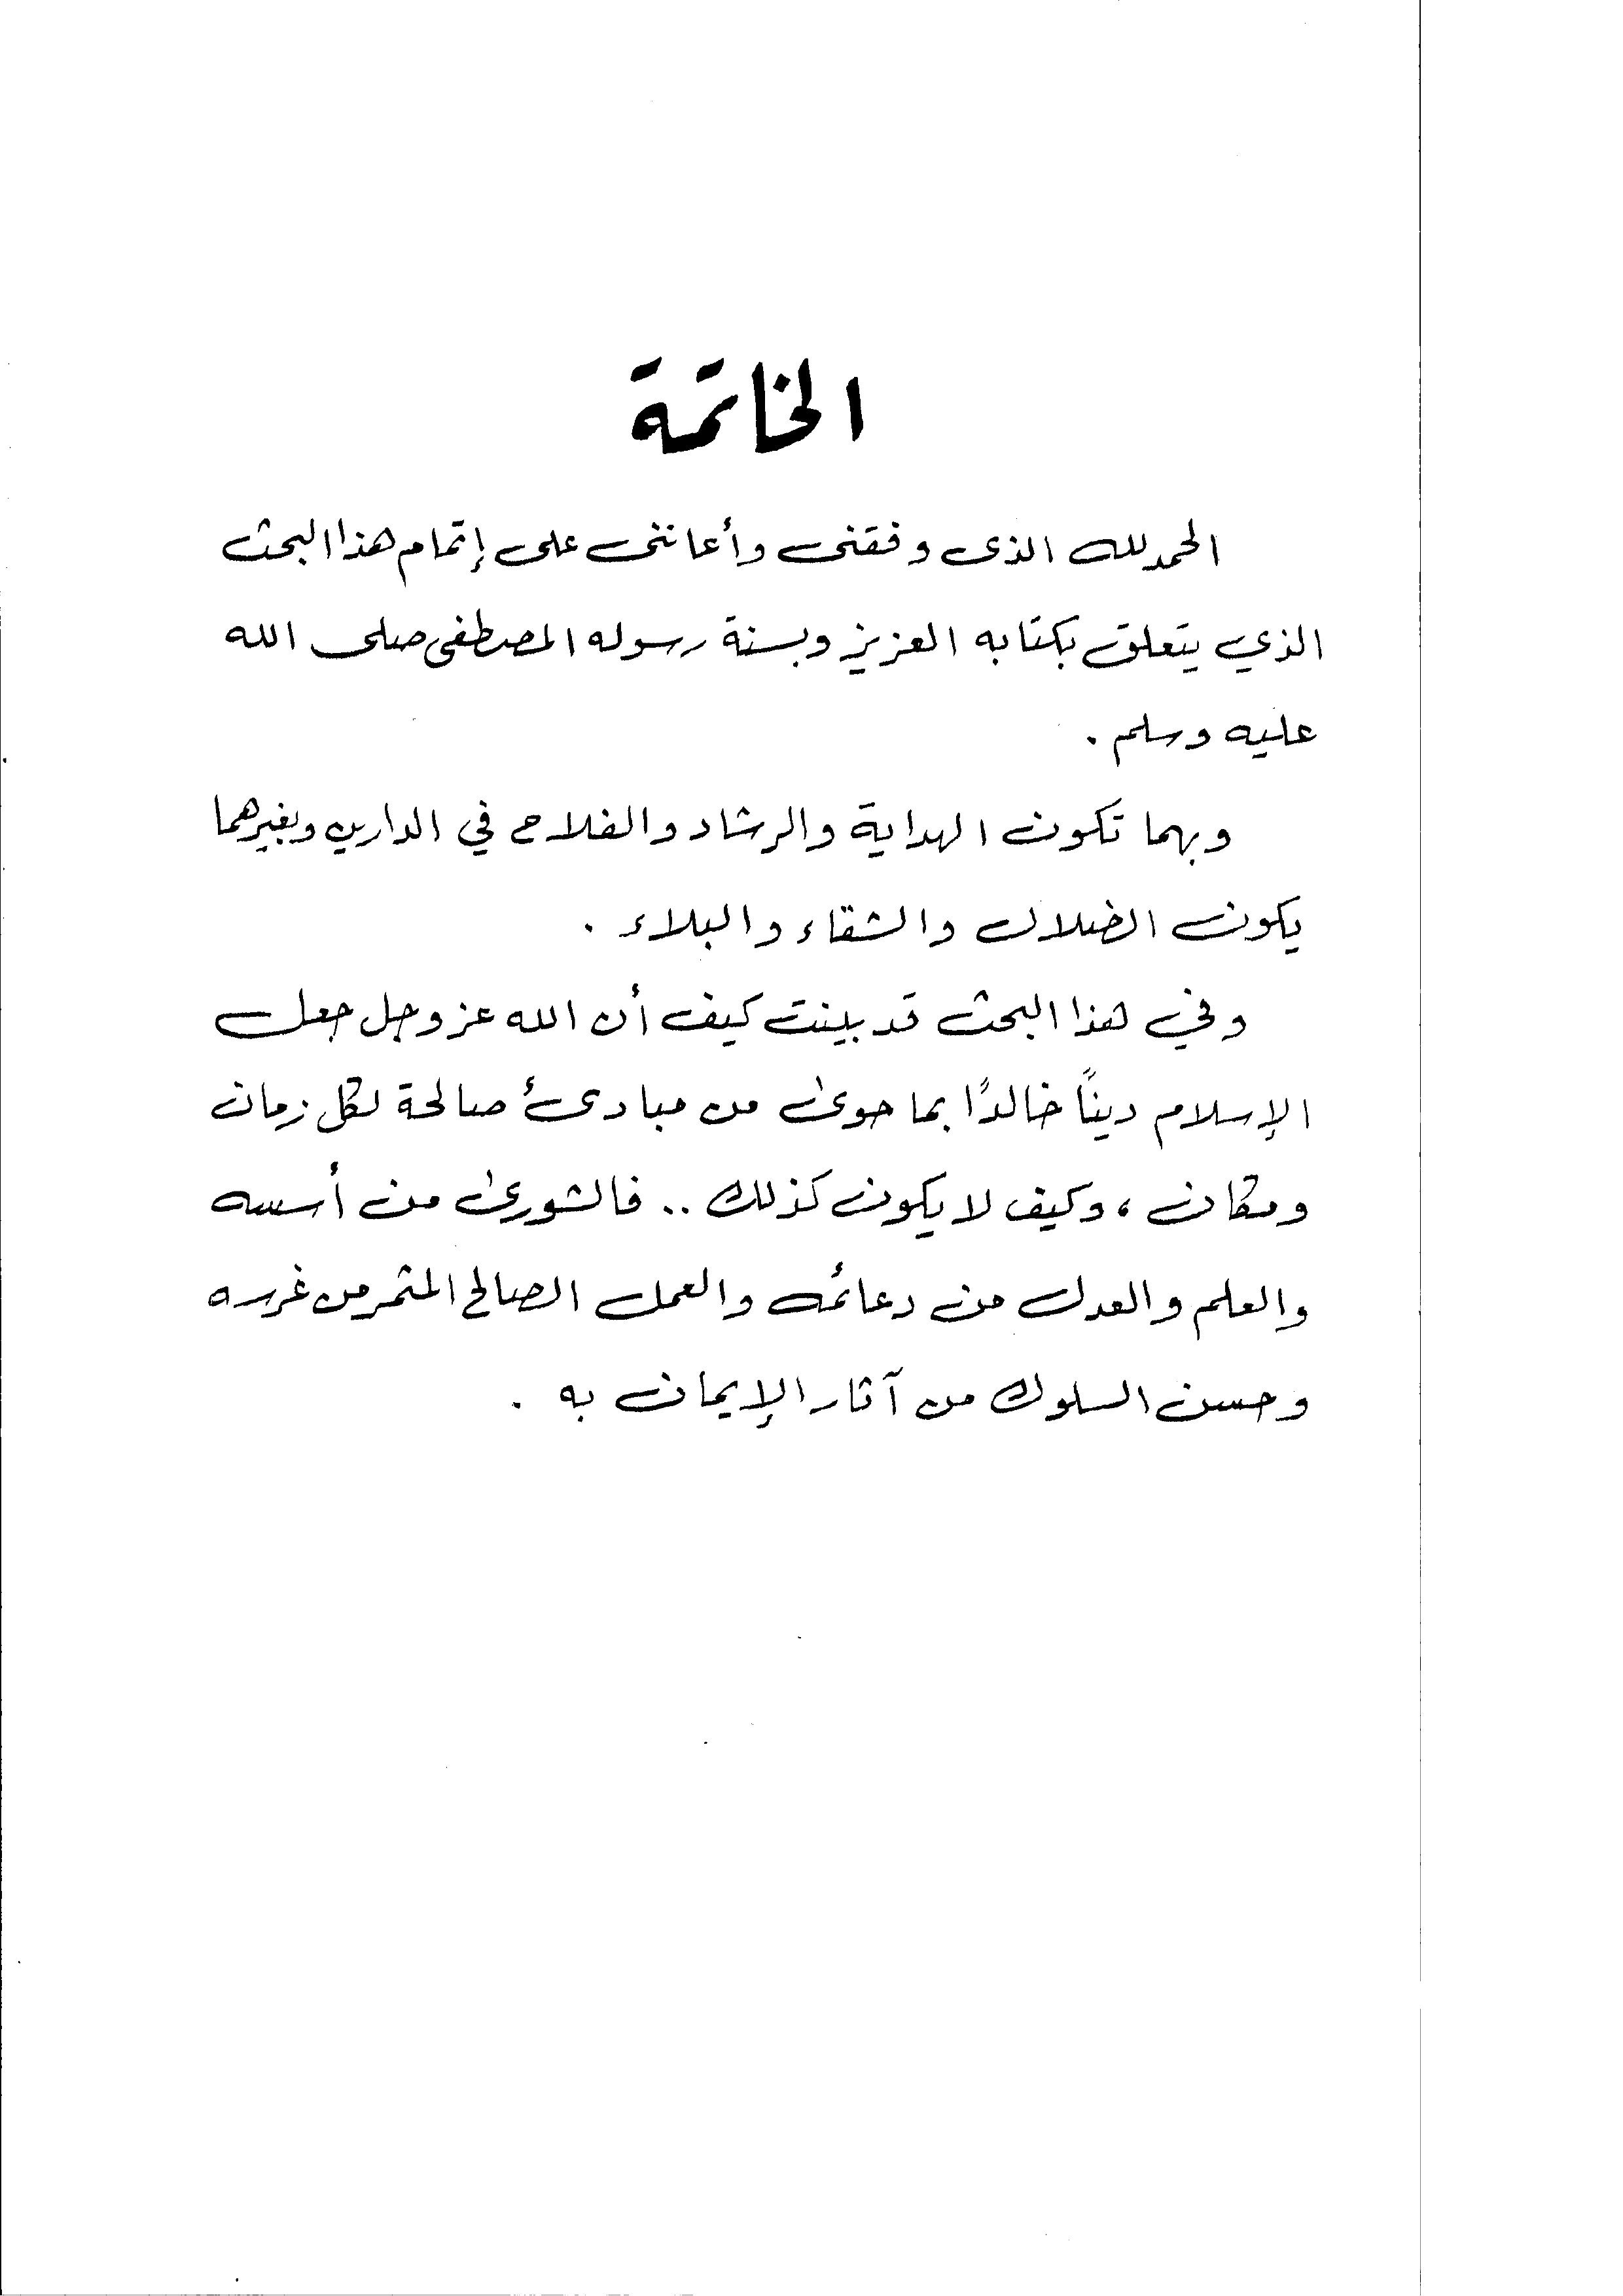 الخاتمة
الحمد لله الذى وفقنى وأعاننى على إتمام هذا البحث
الذي يتعلق بكتابه العزيز وبسنة رسوله المصطفى صلى الله
عليه وسلم .
وبهما تكون الهداية والرشاد والفلاح في الدارين وبغيرهما
يكون الضلال والشقاء والبلاء .
وفي هذا البحث قد بينت كيف أن الله عز وجل جعل
الإسلام دينًا خالدًا بما حوى من مبادئ صالحة لكل زمان
ومكان ، وكيف لا يكون كذلك .. فالشورى من أسسه
والعلم والعدل من دعائمه والعمل الصالح المثمر من غرسه
وحسن السلوك من آثار الإيمان به .